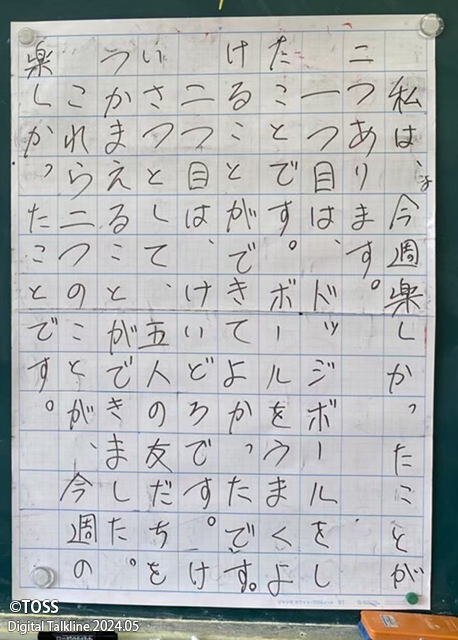 私は、今週楽しかったことが
二つあります。
一つ目は、ドッジボールをし
たことです。ボールをうまくよ
けることができてよかったです。
二つ目は、けいどろです。け
いさつとして、五人の友だちを
つかまえることができました。
これら二つのことが、今週の
楽しかったことです。
©TOSS
Digital Talkline 2024.05